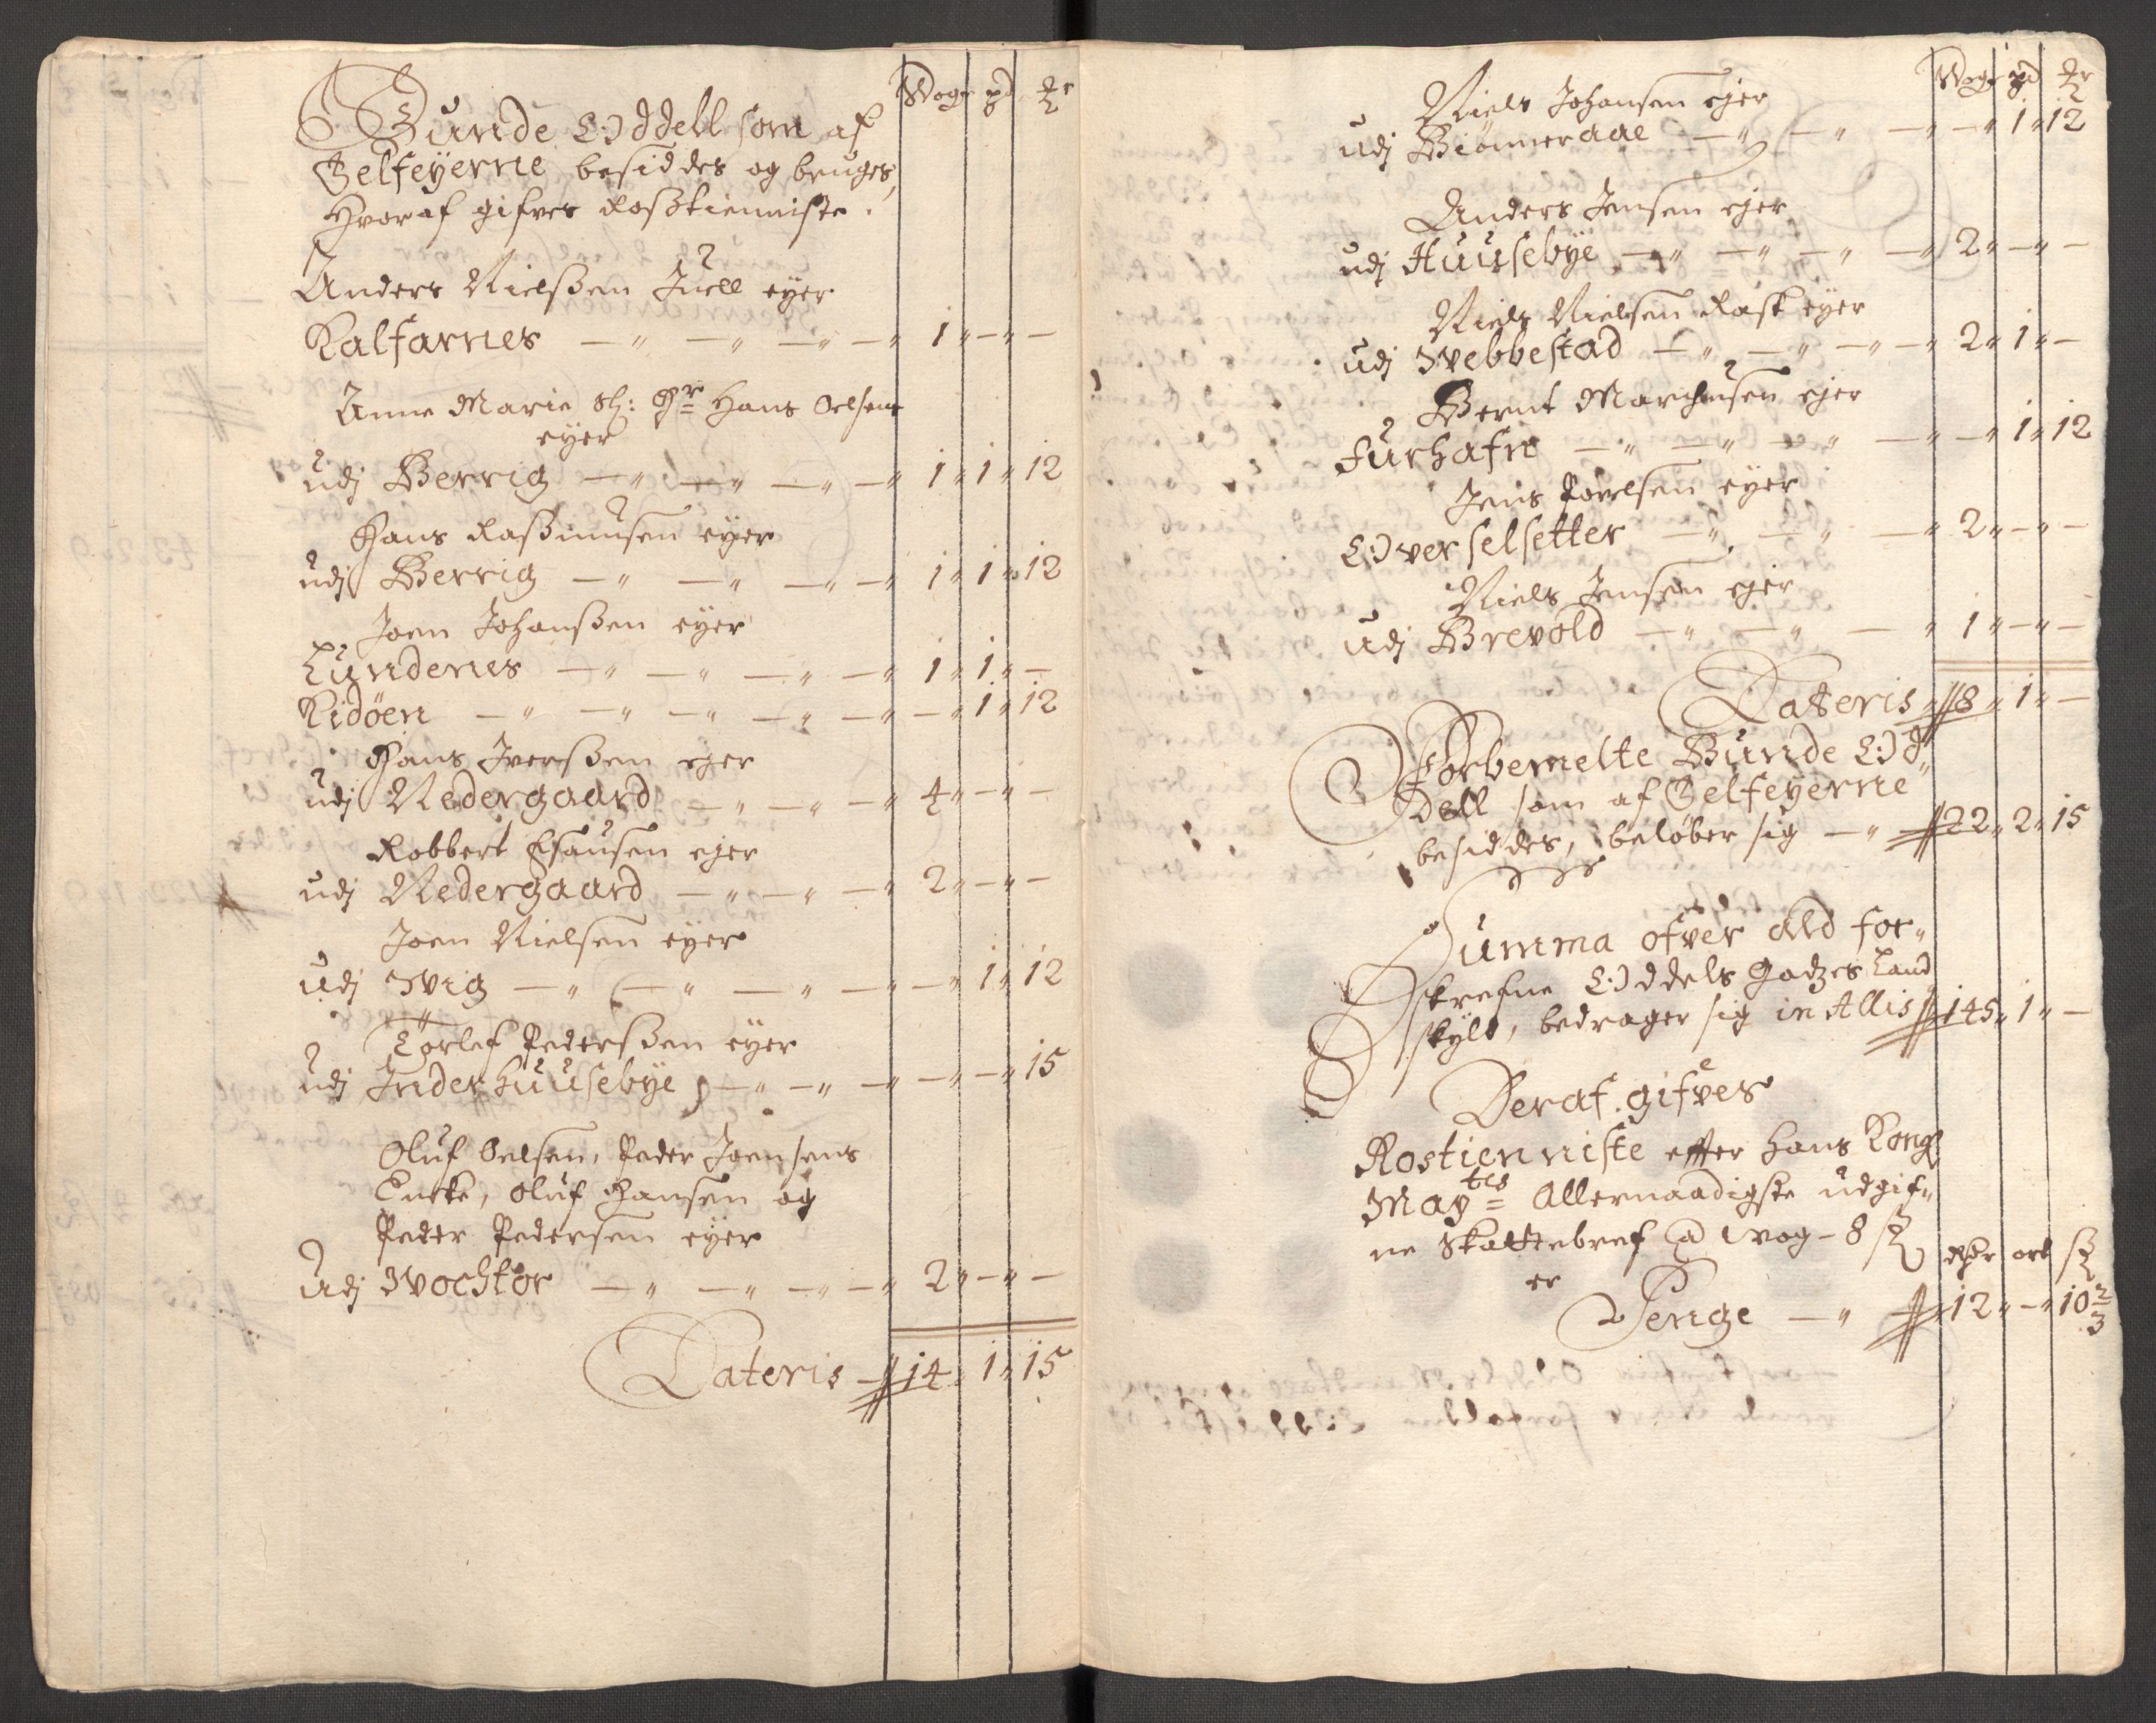 Wog pd
Bunde Oddell som af
Selfeyerne besiddes og bruges,
Hvoraf gifves Rosztienniste.
Anders Nielszen Juell eyer
Kalfarnes — " — " — " — " 1 " — " —
Anne Marie Sl: Hr Hans Oelsens
eyer
udj Berrig — " — " — " — " 1 " 1 " 12
Hans Raszmusen eyer
udj Berrig — " — " — " — " 1 " 1 " 12
Joen Johanszen eyer
Lundenes — " — " — " — " 1 " 1 " —
Kidöen — " — " — " — " — " — " 1 " 12
Hans Iverszen eyer
udj Nedergaard — " — " — " 4 " — " —
Robbert Esausen ejer
udj Nedergaard — " — " — " 2 " — " —
Joen Nielsen eyer
udj Wig — " — " — " — " — " 1 " 12
Torlef Pederszen eyer
udj Inderhuusebye — " — " — " — " — " 15
Oluf Oelsen, Peder Joensens
Encke, Oluf Hansen og
Peder Pedersen eyer
udj Wochtor — " — " — " — " 2 " — " —
Lateris — 14 " 1 " 15
Wog pd
Niels Johansen ejer
udj Biönneraae — " — " — " — " 1 " 12
Anders Jensen ejer
udj Huusebye — " — " — " — " 2 " — " —
Niels Nielsen Rask eyer
udj Webbestad — " — " — " — " 2 " 1 " —
Bernt Marchusen ejer
Furhafn — " — " — " — " — " 1 " 12
Jens Povelsen eyer
Overselsetter — " — " — " 2 " — " —
Niels Jensen ejer
udj Brevold — " — " — " 1 " — " —
Lateris 8 " 1 " —
Forbemelte Bunde Od"
dell som af Selfeyerne
besiddes, beløber sig — " 22 " 2 " 15
Summa ofver ald for"
skrefne Oddels Godzes Land
skyld, bedrager sig in Allis 145 " 1 " —
Deraf gifves
Rostienniste effter Hans Kongl
Maytes Allernaadigste udgif"
ne Skattebref @ wog - 8 ß Rdr ort ß
er
Penge — " 12 " — " 10 2/3